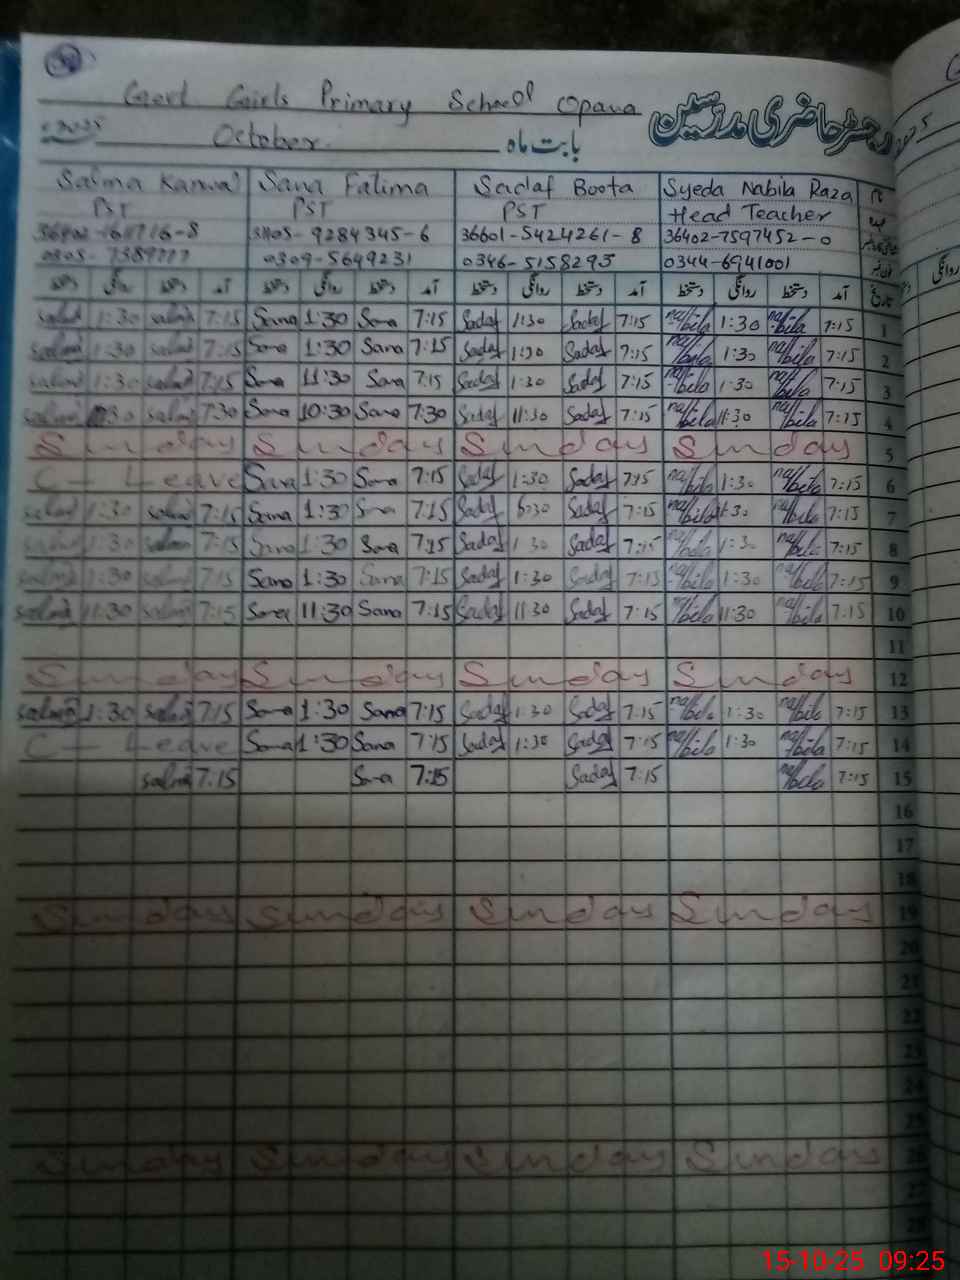 Govt Girls Primary School Opana
رجسٹر حاضری مدرسین
October بابت ماہ
Salma Kanwal Sana Fatima Sadaf Boota Syeda Nabila Raza نام
PST PST PST Head Teacher عہدہ
9284345-6 36601-5424261-8 36402-7597452-0
0309-5649231 0346-5158295 0344-6941001 فون نمبر
دستخط روانگی دستخط آمد دستخط روانگی دستخط آمد دستخط روانگی دستخط آمد دستخط روانگی دستخط آمد تاریخ
salma 1:30 salma 7:15 Sana 1:30 Sana 7:15 Sadaf 1:30 Sadaf 7:15 nabila 1:30 nabila 7:15 1
salma 1:30 salma 7:15 Sana 1:30 Sana 7:15 Sadaf 1:30 Sadaf 7:15 nabila 1:30 nabila 7:15 2
salma 1:30 salma 7:15 Sana 11:30 Sana 7:15 Sadaf 1:30 Sadaf 7:15 nabila 1:30 nabila 7:15 3
salma salma 7:30 Sana 10:30 Sana 7:30 Sadaf 11:30 Sadaf 7:15 nabila 11:30 nabila 7:15 4
Sunday Sunday Sunday Sunday 5
C - Leave Sana 1:30 Sana 7:15 Sadaf 1:30 Sadaf 7:15 nabila 1:30 nabila 7:15 6
salma 1:30 salma 7:15 Sana 1:30 Sana 7:15 Sadaf Sadaf 7:15 nabila nabila 7:15 7
salma 1:30 salma 7:15 Sana 1:30 Sana 7:15 Sadaf 1:30 Sadaf 7:15 nabila 1:30 nabila 7:15 8
salma 1:30 salma 7:15 Sana 1:30 Sana 7:15 Sadaf 1:30 Sadaf 7:15 nabila 1:30 nabila 7:15 9
salma 11:30 salma 7:15 Sana 11:30 Sana 7:15 Sadaf 11:30 Sadaf 7:15 nabila 11:30 nabila 7:15 10
11
Sunday Sunday Sunday Sunday 12
salma 1:30 salma 7:15 Sana 1:30 Sana 7:15 Sadaf 1:30 Sadaf 7:15 nabila 1:30 nabila 7:15 13
C - Leave Sana 1:30 Sana 7:15 Sadaf 1:30 Sadaf 7:15 nabila 1:30 nabila 7:15 14
salma 7:15 Sana 7:15 Sadaf 7:15 nabila 7:15 15
16
17
18
Sunday Sunday Sunday Sunday 19
20
21
22
23
24
25
Sunday Sunday Sunday Sunday 26
27
28
15-10-25 09:25